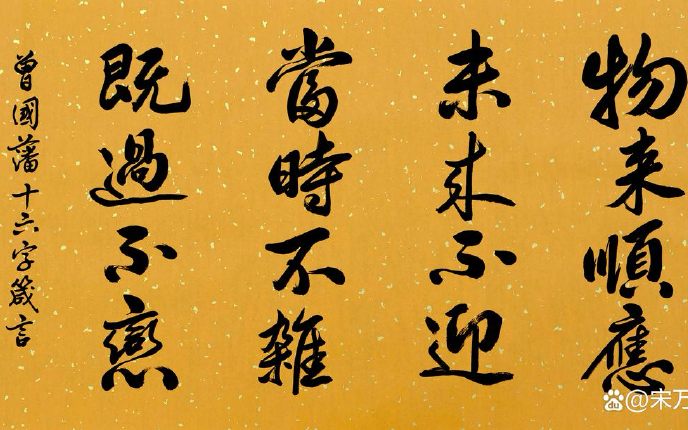 物来順應
未来不迎
當時不雜
既過不戀
曾國藩十六字箴言
du @宋万